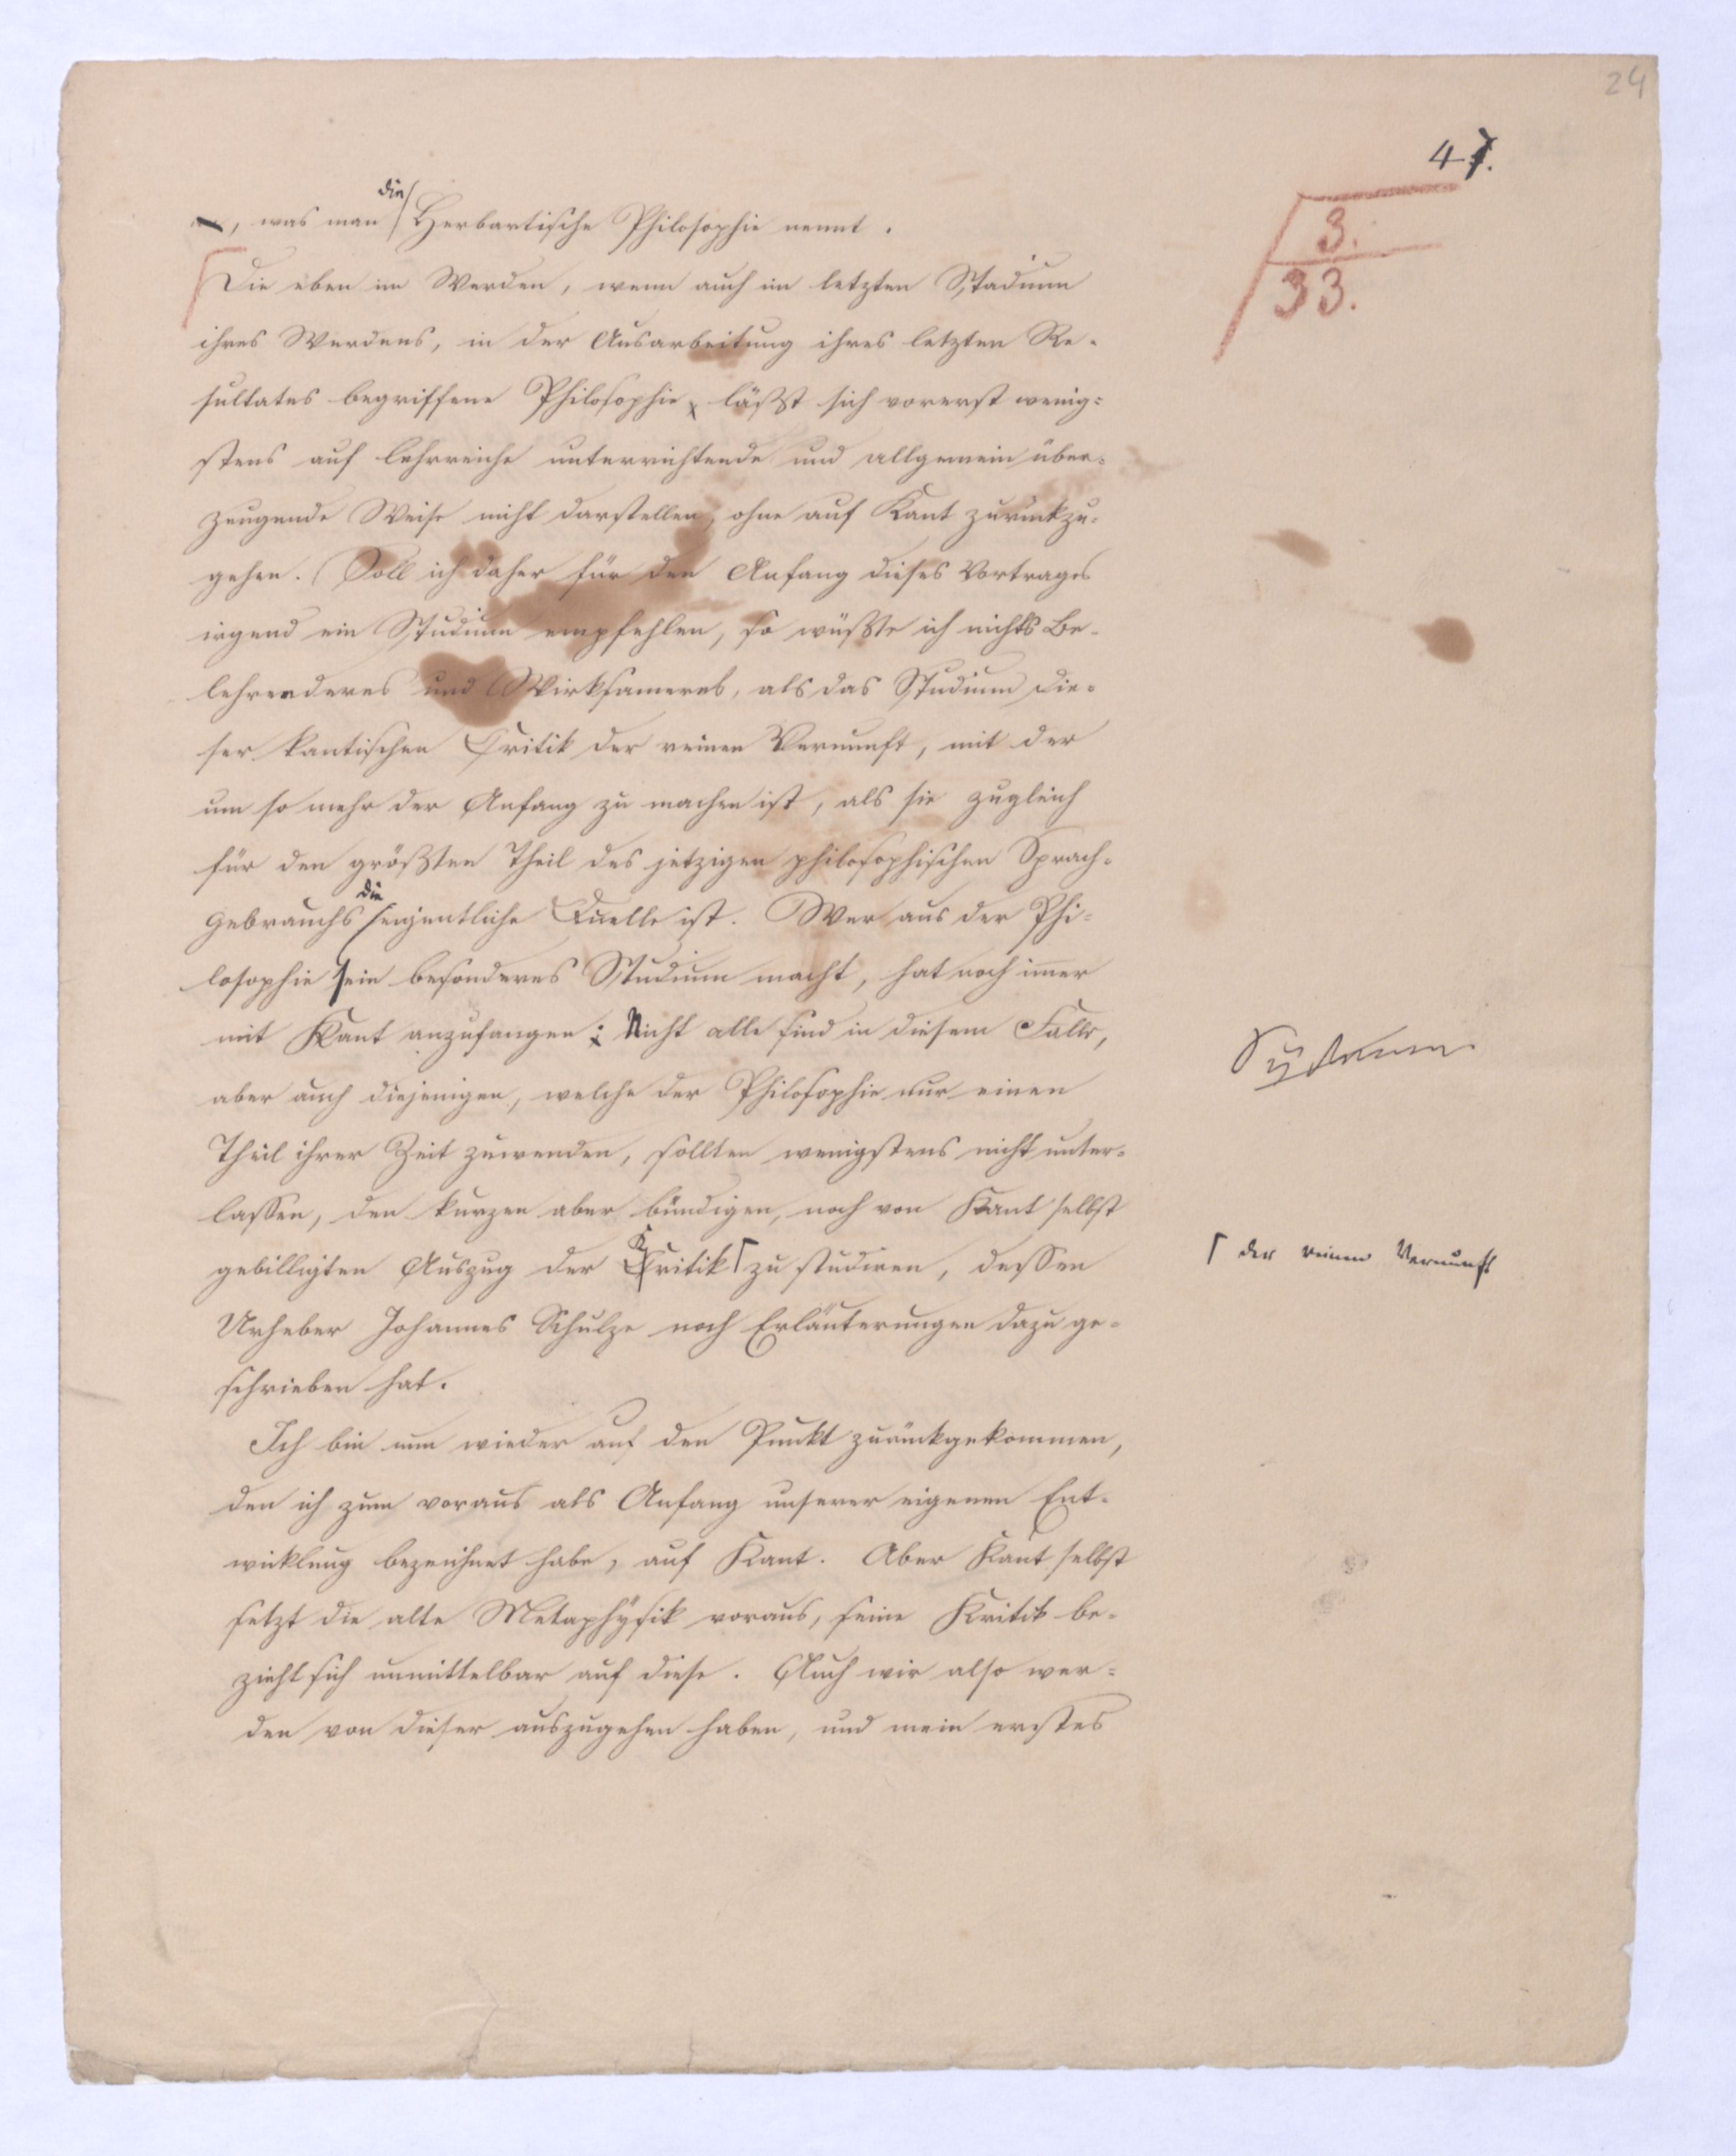 24
47.
die
, was man Herbartische Philosophie nennt.
3.
33.
Die eben im Werden, wenn auch im letzten Stadium
ihres Werdens, in der Ausarbeitung ihres letzten Re-
sultates begriffene Philosophie läßt sich vorerst wenig-
stens auf lehrreiche unterrichtende und allgemein über-
zeugende Weise nicht darstellen, ohne auf Kant zurückzu-
gehen. Soll ich daher für den Anfang dieses Vortrages
irgend ein Studium empfehlen, so wüßte ich nichts Be-
lehrenderes und Wirksameres, als das Studium die-
ser kantischen Critik der reinen Vernunft, mit der
um so mehr der Anfang zu machen ist, als sie zugleich
für den größten Theil des jetzigen philosophischen Sprach-
die
gebrauchs eigentliche Quelle ist. Wer aus der Phi-
losophie sein besonderes Studium macht, hat noch immer
mit Kant anzufangen; Nicht alle sind in diesem Falle,
aber auch diejenigen, welche der Philosophie nur einen
Theil ihrer Zeit zuwenden, sollten wenigstens nicht unter-
lassen, den kurzen aber bündigen, noch von Kant selbst
gebilligten Auszug der Kritik zu studiren, dessen
der reinen Vernunft
Urheber Johannes Schulze noch Erläuterungen dazu ge-
schrieben hat.
Ich bin nun wieder auf den Punkt zurückgekommen,
den ich zum voraus als Anfang unserer eigenen Ent-
wicklung bezeichnet habe, auf Kant. Aber Kant selbst
setzt die alte Metaphysik voraus, seine Kritik be-
zieht sich unmittelbar auf diese. Auch wir also wer-
den von dieser auszugehen haben, und mein erstes